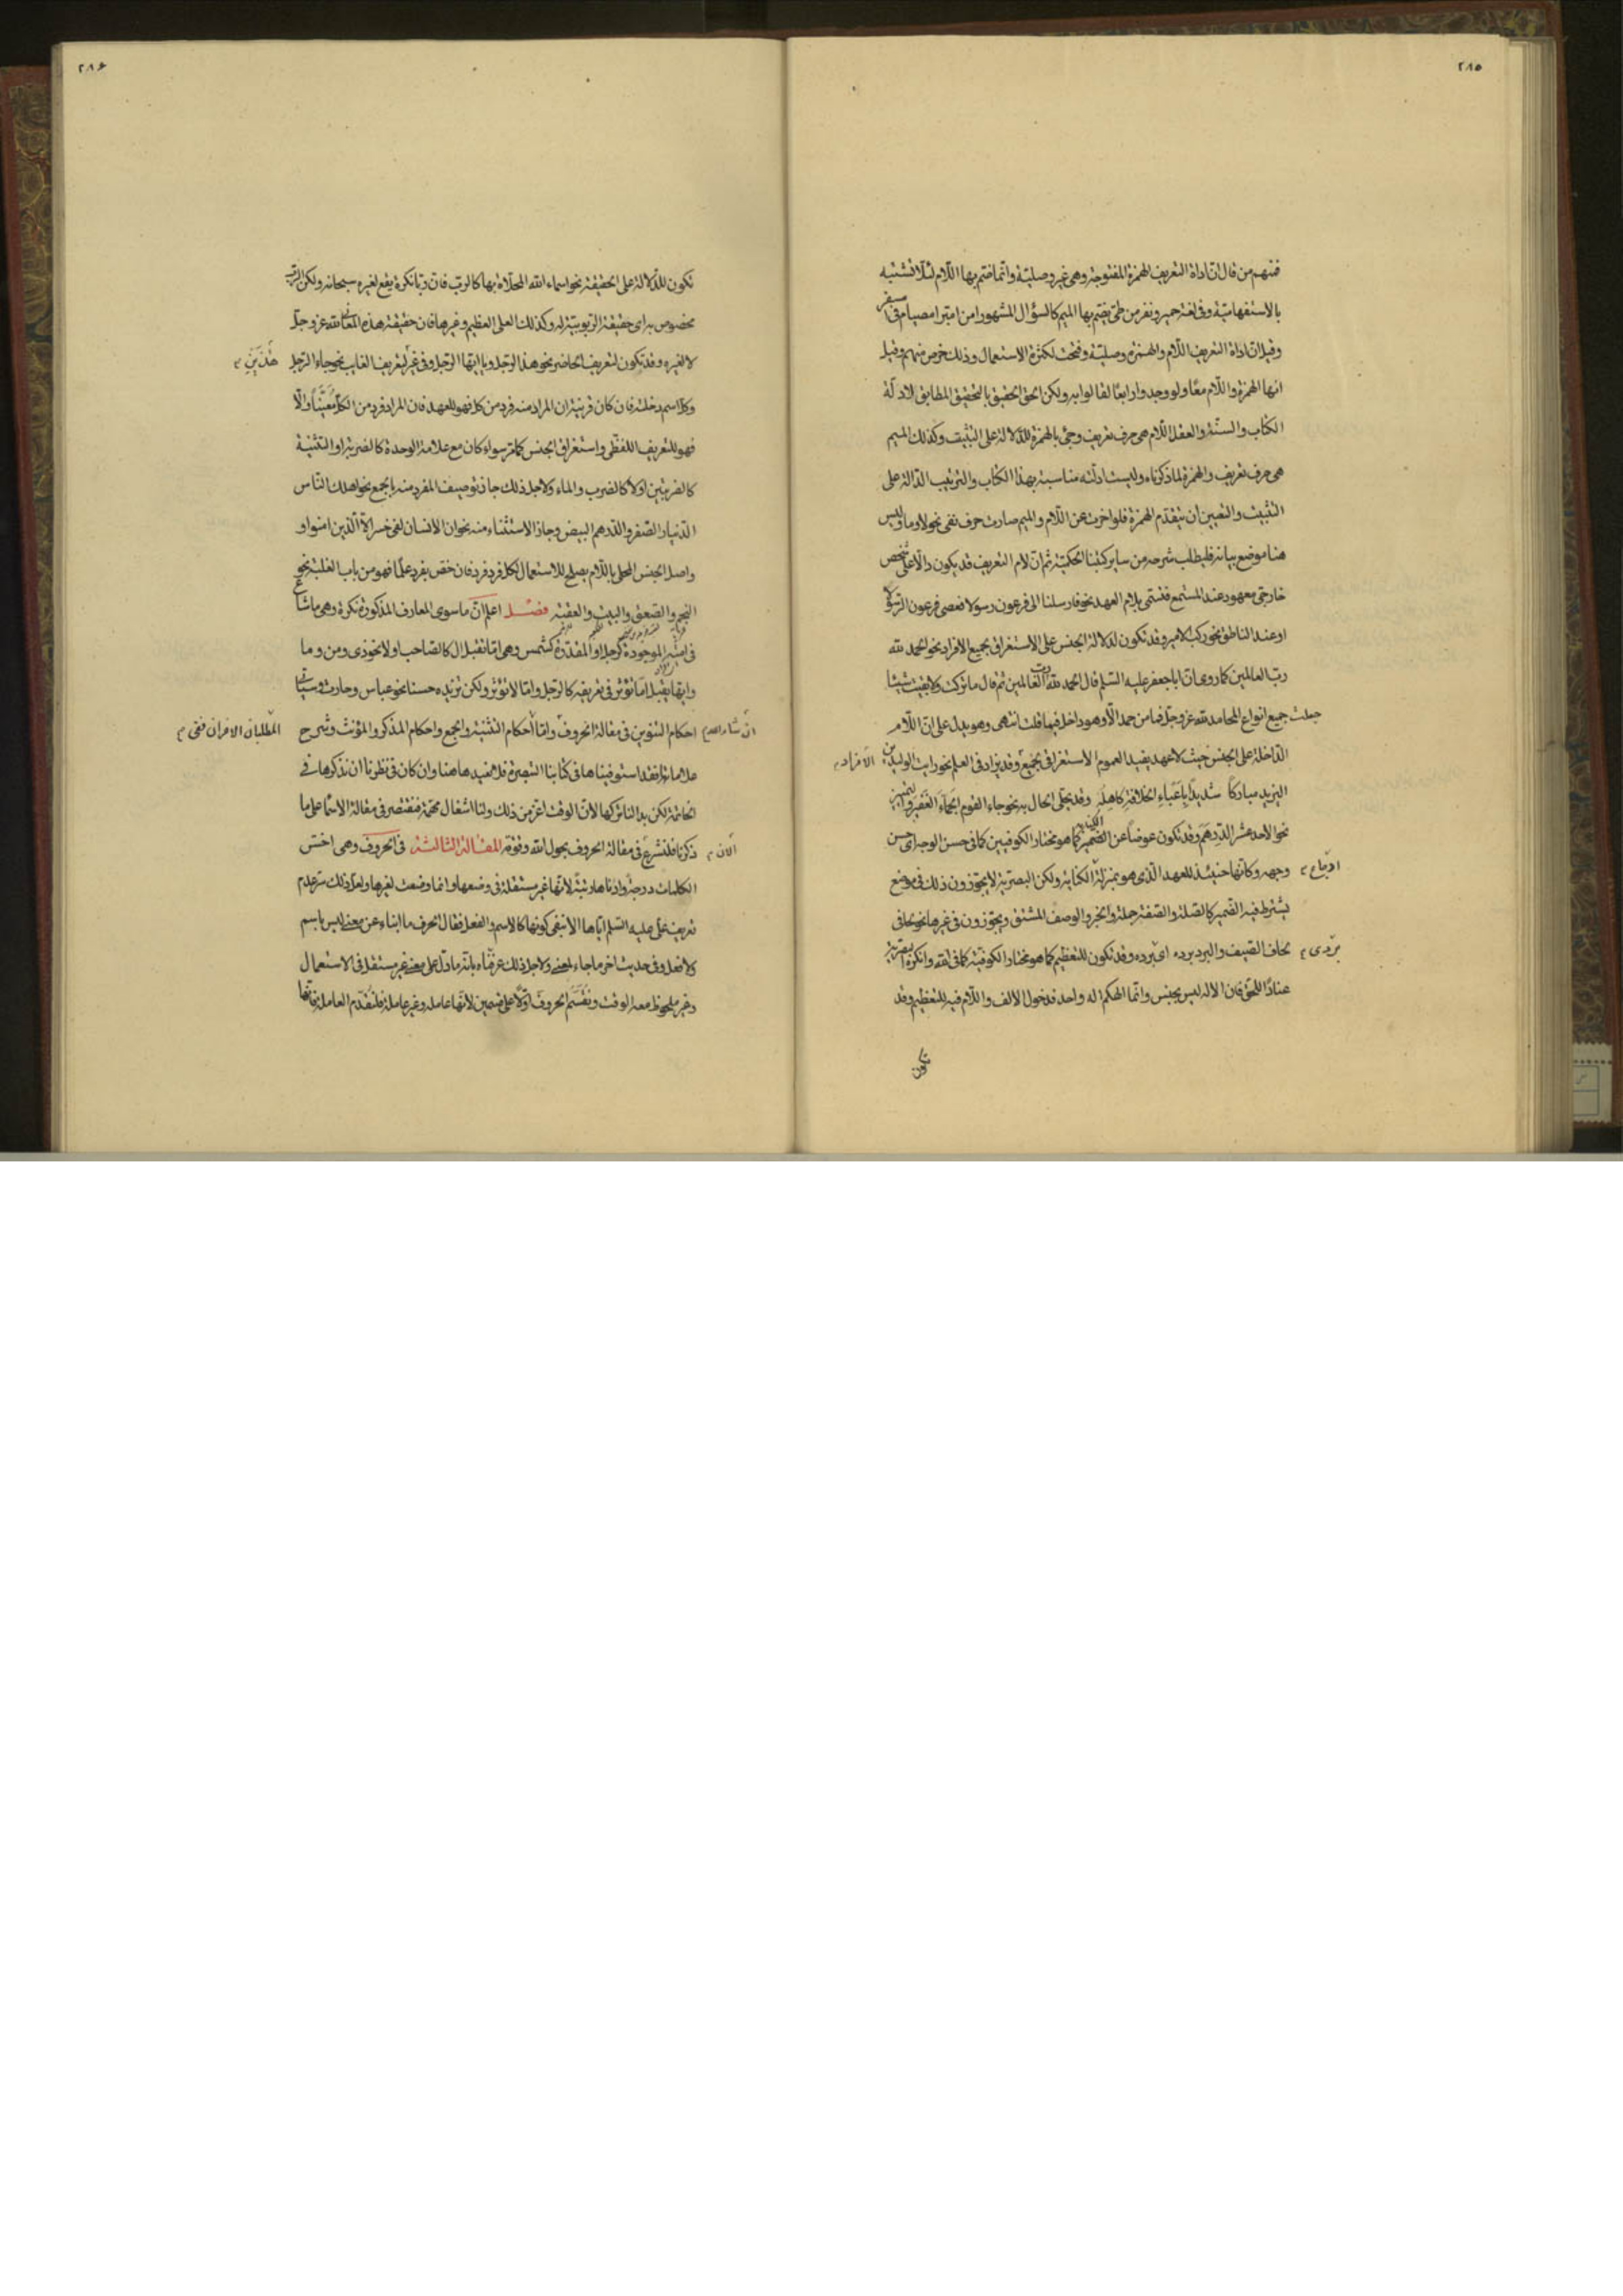 ٢٨٥
فمنهم من قال ان اداة التعريف الهمزة المفتوحة وهي غير وصلية وانما ضم بها اللام لئلا تشتبه
بالاستفهامية وفي لغة حمير ونفر من طي يضم بها الميم كالسؤال المشهور امن امبر امصيام في امسفر
وقيل ان اداة التعريف اللام والهمزة وصلية وفتحت لكثرة الاستعمال وذلك خرص منهم وقيل
انها الهمزة واللام معًا ولو وجدوا رابعًا لقالوا به ولكن الحق الحقيق بالتحقيق المطابق لادلة
الكتاب والسنة والعقل اللام هي حرف تعريف وجئ بالهمزة للدلالة على التثبت وكذلك الميم
هي حرف تعريف والهمزة لما ذكرناه وليست ادلته مناسبة بهذا الكتاب والترتيب الدالة على
التثبيت والتعيين ان يتقدم الهمزة فلو اخرت عن اللام والميم صارت حرف نفي نحو لا وما وليس
هنا موضع بيانه فليطلب شرحه من ساير كتبنا الحكمية ثم ان لام التعريف قد يكون دالا على شخص
خارجي معهود عند المستمع فتسمى بلام العهد نحو فارسلنا الى فرعون رسولا فعصى فرعون الرسول
او عند الناطق نحو ركب الامير وقد تكون لدلالة الجنس على الاستغراق بجميع الافراد نحو الحمد لله
رب العالمين كما روى ان ابا جعفر عليه السلم قال الحمد لله رب العالمين ثم قال ما تركت ولا بقيت شيئا
جعلت جميع انواع المحامد لله عز وجل فما من حمد الا وهو داخل فيها قلت انتهى وهو يدل على ان اللام
الداخلة على الجنس حيث لا عهد يفيد العموم الاستغراقي بجميع وقد يزاد في العلم نحو رايت الوليد بن
الافراد
اليزيد مباركًا شديدًا باعباء الخلافة كاهله وقد يحلى الحال به نحو جاء القوم الجماء الغفير والتميز
نحو الاحد عشر الدرهم وقد تكون عوضًا عن الضمير كما هو مختار الكوفيين كما في حسن الوجه اي حسن
وجهه وكانها حينئذ للعهد الذي هو بمنزلة الكناية ولكن البصرية لا يجوزون ذلك في موضع
يشترط فيه الضمير كالصلة والصفة جملة والخبر والوصف المشتق ويجوزون في غيرها نحو لحافي
لحاف الضيف والبرد برده اي برده وقد تكون للتعظيم كما هو مختار الكوفية كما في الله وانكره البصرية
بردى
عنادًا للحق فان الاله ليس بجنس وانما الهكم اله واحد فدخول الالف واللام فيه للتعظيم وقد
تكون
٢٨۶
تكون للدلالة على الحقيقة نحو اسماء الله المحلاة بها كالرب فان ربا نكرة يقع لغيره سبحانه ولكن الرب
مخصوص به اي حقيقة الربوبية له وكذلك العلي العظيم وغيرها فان حقيقة هذه المعاني لله عز وجل
لا لغيره وقد تكون لتعريف الحاضر نحو هذا الرجل ويا ايها الرجل وفي غير لتعريف الغايب نحو جاء الرجل
هذين
وكل اسم دخلته فان كان قرينة ان المراد منه فرد من كل فهو للعهد فان المراد فرد من الكل معينًا والا
فهو للتعريف اللفظي واستغراق الجنس كما مر سواء كان مع علامة الوحدة كالضربة او التثنية
كالضربتين او لا كالضرب والماء ولاجل ذلك جاز توصيف المفرد منه بالجمع نحو اهلك الناس
الدينار الصفر والدرهم البيض وجاز الاستثناء منه نحو ان الانسان لفي خسر الا الذين امنوا و
واصل الجنس المحلى باللام يصلح للاستعمال لكل فرد فرد فان خص بفرد علمًا فهو من باب الغلبة نحو
النجم والصعق والبيت والعقبة فصل اعلم ان ما سوى المعارف المذكورة نكرة وهي ما شاع
في امته الموجودة كرجل او المقدرة كشمس وهي اما تقبل ال كالصاحب او لا نحو ذي ومن وما
وايها يقبل اما تؤثر في تعريفه كالرجل واما لا تؤثر ولكن تزيده حسنا نحو عباس وحارث وسياتي
ان شاء الله احكام التنوين في مقالة الحروف واما احكام التثنية والجمع واحكام المذكر والمؤنث وشرح
المطلبان الاخران ففي
علاماتها فقد استوفيناها في كتابنا التبصرة فلا نعيدها هنا وان كان في نظرنا ان نذكرها في
الخاتمة لكن بدا لنا تركها لان الوقت اعز من ذلك ولنا اشغال مهمة فنقتصر في مقالة الاسماء على ما
ذكرنا فلنشرع الان في مقالة الحروف بحول الله وقوته المقالة الثالثة في الحروف وهي اخس
الكلمات درجة وادناها رتبة لانها غير مستقلة في وضعها وانما وضعت لغيرها ولعل ذلك سر عدم
تعريف علي عليه السلم اياها الا بنفي كونها كالاسم والفعل فقال الحرف ما انباء عن معنى ليس باسم
ولا فعل وفي حديث اخر ما جاء لمعنى ولاجل ذلك عرفناه بانه ما دل على معنى غير مستقل في الاستعمال
وغير ملحوظ معه الوقت ونقسم الحروف اولا على قسمين لانها عاملة وغير عاملة فلنقدم العاملة فانها